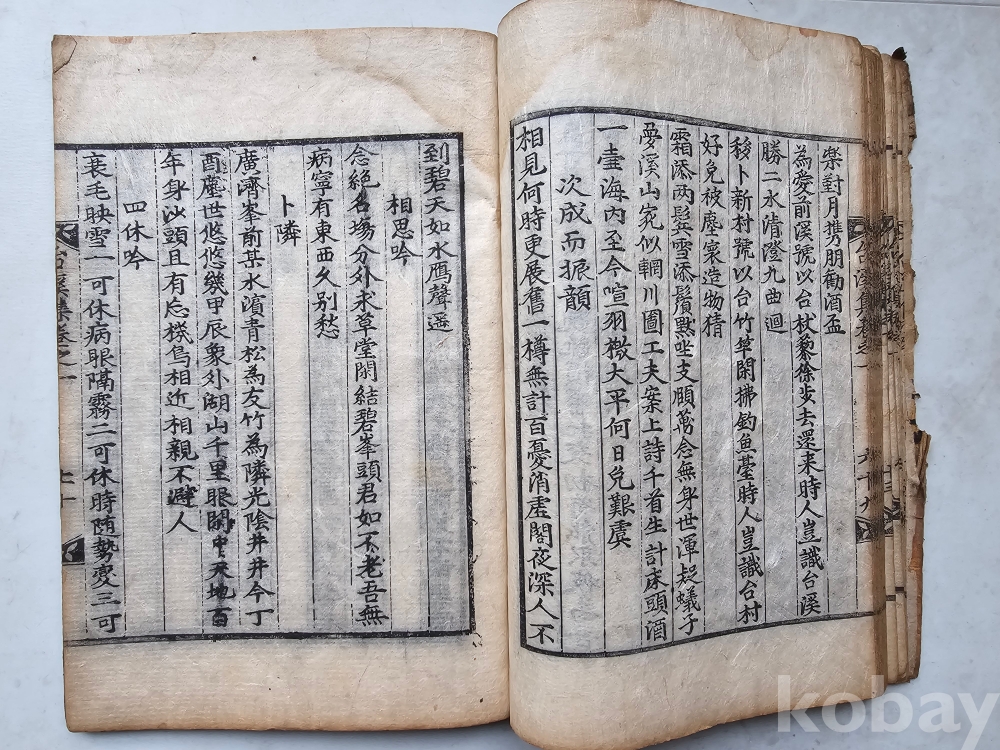 台溪集卷之一
六十九
榮對月携朋勸酒盃
為愛前溪號以台杖藜徐步去還来時人豈識台溪
勝二水清澄九曲迴
移卜新村號以台竹竿閑拂釣魚臺時人豈識台村
好免被塵寰造物猜
霜添两鬂雪添鬚黙坐支頤萬念無身世渾疑蟻子
夣溪山宛似輞川圖工夫案上詩千首生計床頭酒
一壷海内至今喧羽檄大平何日免艱虞
次成而振韻
相見何時更展舊一樽無計百憂消虛閣夜深人不
到碧天如水鴈聲遥
相思吟
念絶名塲分外求草堂閑結碧峯頭君如不老吾無
病寧有東西久别愁
卜隣
廣濟峯前某水濱青松為友竹為隣光陰井井今丁
酉塵世悠悠幾甲辰象外湖山千里眼閑中天地百
年身沙頭且有忘機鳥相近相親不避人
四休吟
衰毛映雪一可休病眼隔霧二可休時随勢變三可
台溪集卷之一
七十
kobay